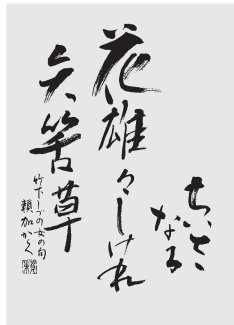 ちいさ
なる
花雄々しけれ
矢筈草
竹下しづの女の句
頼加かく